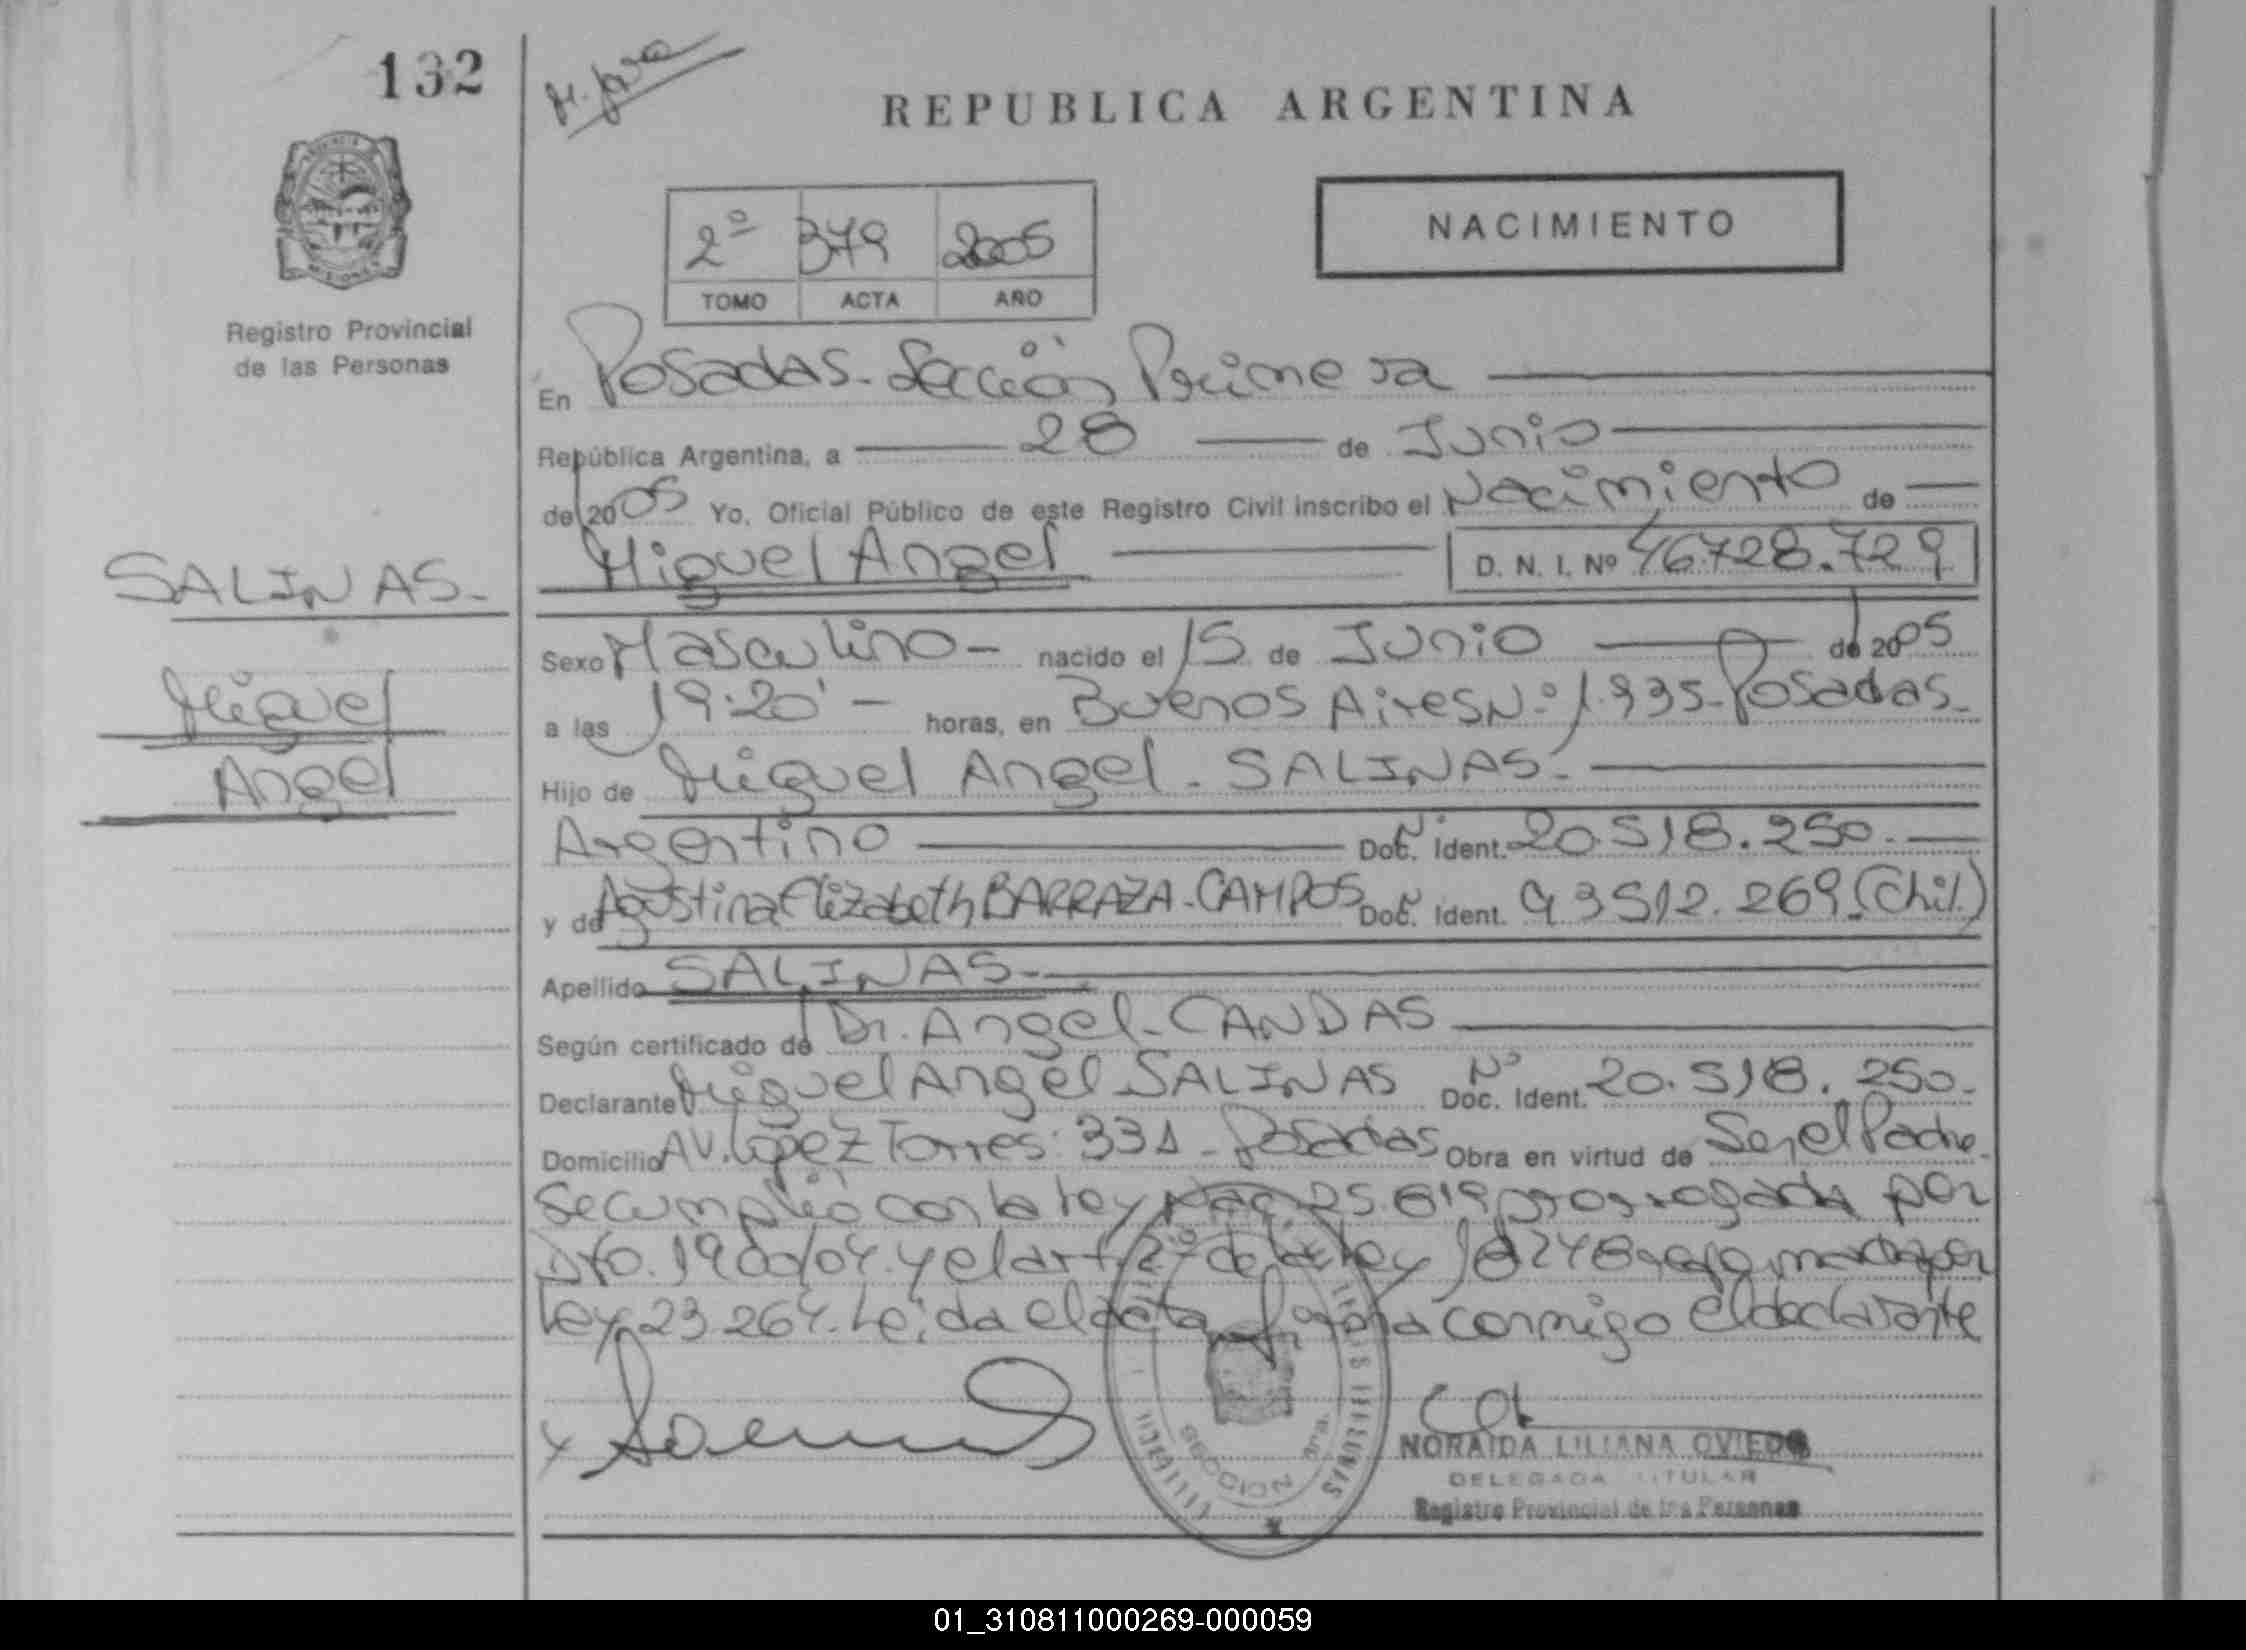 132
REPUBLICA ARGENTINA
2º 379 2005
TOMO ACTA AÑO
NACIMIENTO
Registro Provincial
de las Personas
En Posadas - Sección Primera
República Argentina, a 28 de Junio
de 2005 Yo, Oficial Público de este Registro Civil inscribo el Nacimiento de
Miguel Angel D. N. I. Nº 46.728.729
SALINAS.-
Miguel
Angel
Sexo Masculino - nacido el 15 de Junio de 2005
a las 19:20' - horas, en Buenos Aires Nº 1.935 - Posadas.
Hijo de Miguel Angel - SALINAS.-
Argentino Doc. Ident. Nº 20.518.250.
y de Agostina Elizabeth BARRAZA - CAMPOS Doc. Ident. Nº 93512.269 (Chil.)
Apellido SALINAS.-
Según certificado de Dr. Angel - CANDAS
Declarante Miguel Angel SALINAS Nº Doc. Ident. 20.518.250.-
Domicilio AV. López Torres: 331 - Posadas Obra en virtud de Ser el Padre.
Se cumplió con la Ley Nac. 25.819 prorrogada por
Dto. 1900/04. y el art. 2º de la Ley 18248 por
Ley 23.264. Leída el acta firma conmigo el declarante
SECCION 1ra.
NORAIDA LILIANA OVIEDO
DELEGADA TITULAR
Registro Provincial de las Personas
01_310811000269-000059